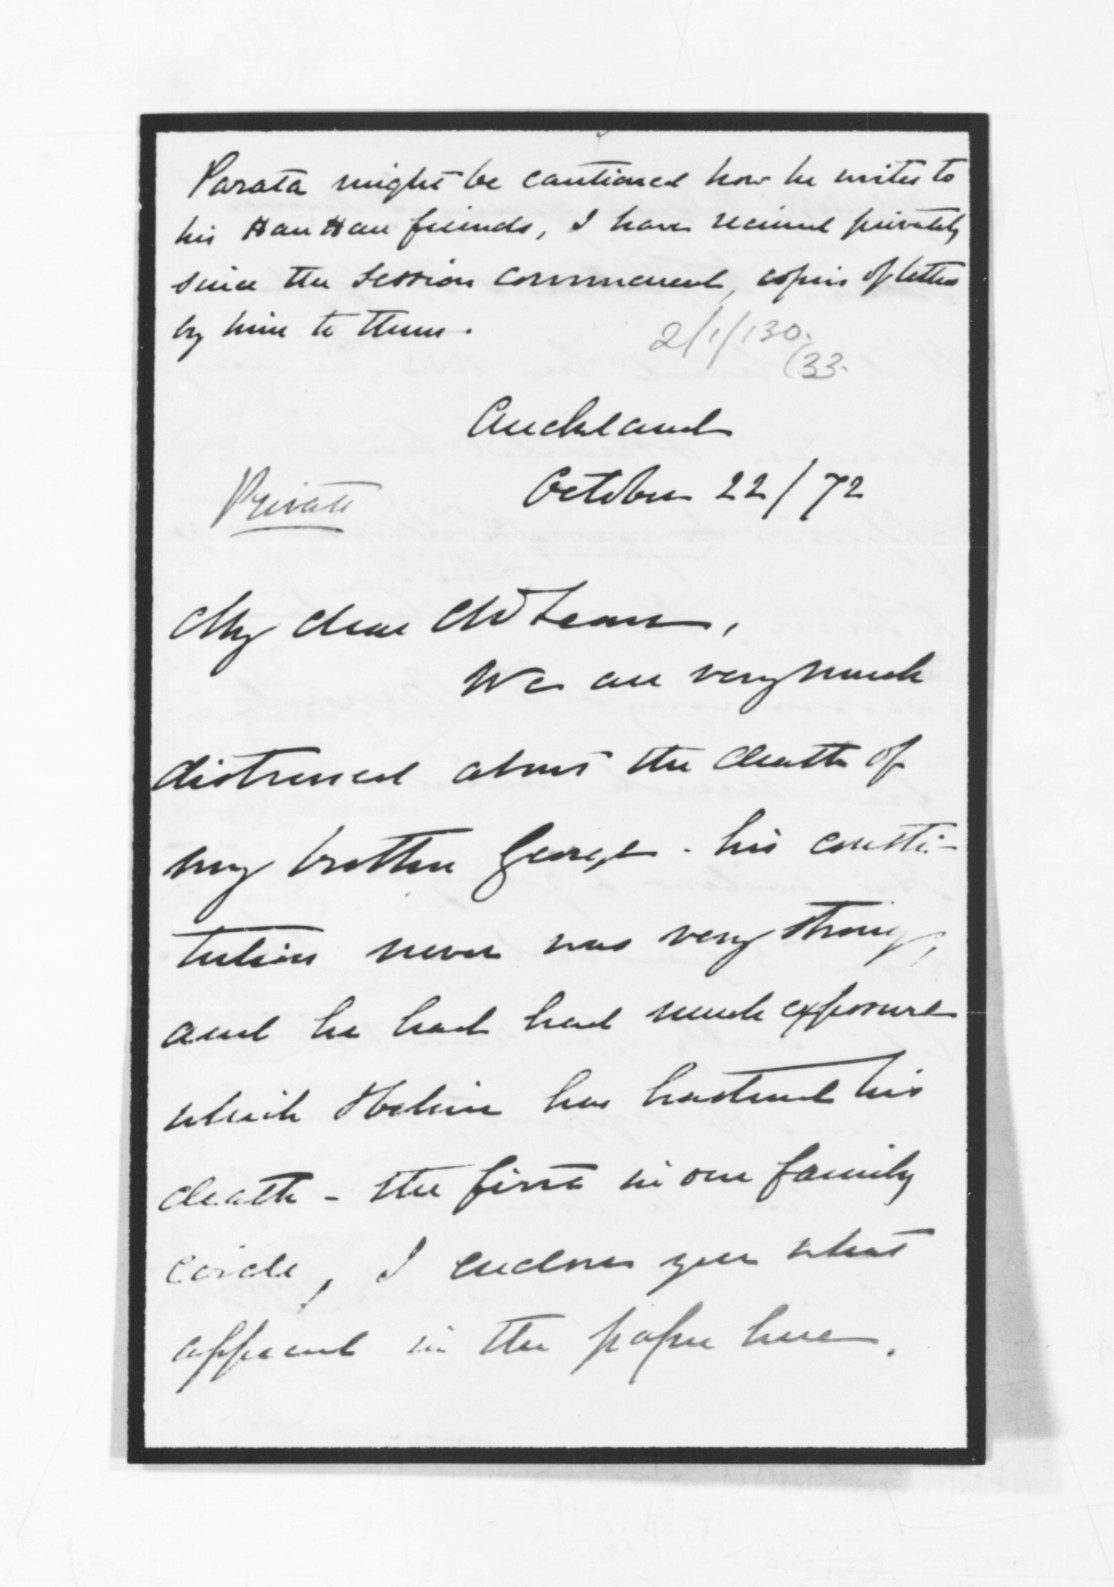 Parata might be cautioned how he writes to
his Hau Hau friends, I have received privately
since the Session commenced, copies of letters
by him to them.
2/1/130.
(33.
Auckland
October 22/72
Private
My dear McLean,
We are very much
distressed about the death of
my brother George - his consti-
tution never was very strong,
and he had had much exposure
which I believe has hastened his
death - the first in our family
circle, I enclose you what
appeared in the paper here.